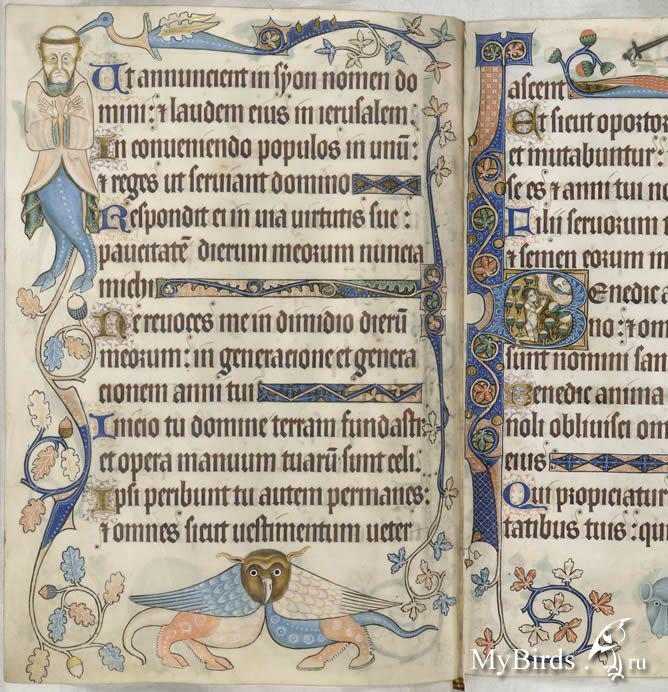 Ut annuncient in syon nomen do
mini: ⁊ laudem eius in ierusalem:
In conueniendo populos in unū:
⁊ reges ut seruiant domino
Respondit ei in uia uirtutis sue:
paucitatē dierum meorum nuncia
michi
Ne reuoces me in dimidio dierū
meorum: in generacione et genera
cionem anni tui
Inicio tu domine terram fundasti:
et opera manuum tuarū sunt celi.
Ipsi peribunt tu autem permanes:
⁊ omnes sicut uestimentum ueter
ascent
Et sicut opertor
et mutabuntur:
se es ⁊ anni tui no
Filii seruorum
⁊ semen eorum in
Benedic a
no: ⁊ om
sunt nomini san
Benedic anima
noli obliuisci om
eius
Qui propiciatur
tatibus tuis: qui
MyBirds.ru